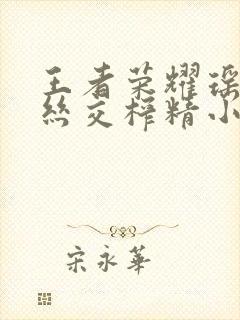 王者荣耀瑶
丝交榨精小
宋永華